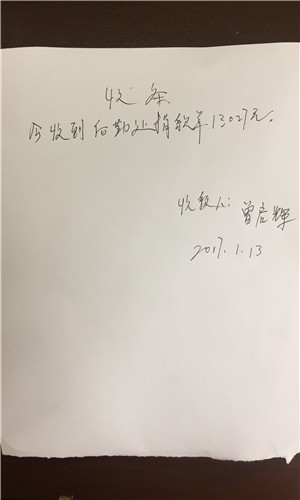 收条
今收到后勤处捐款羊13027元。
收款人:
曾启辉
2017.1.13